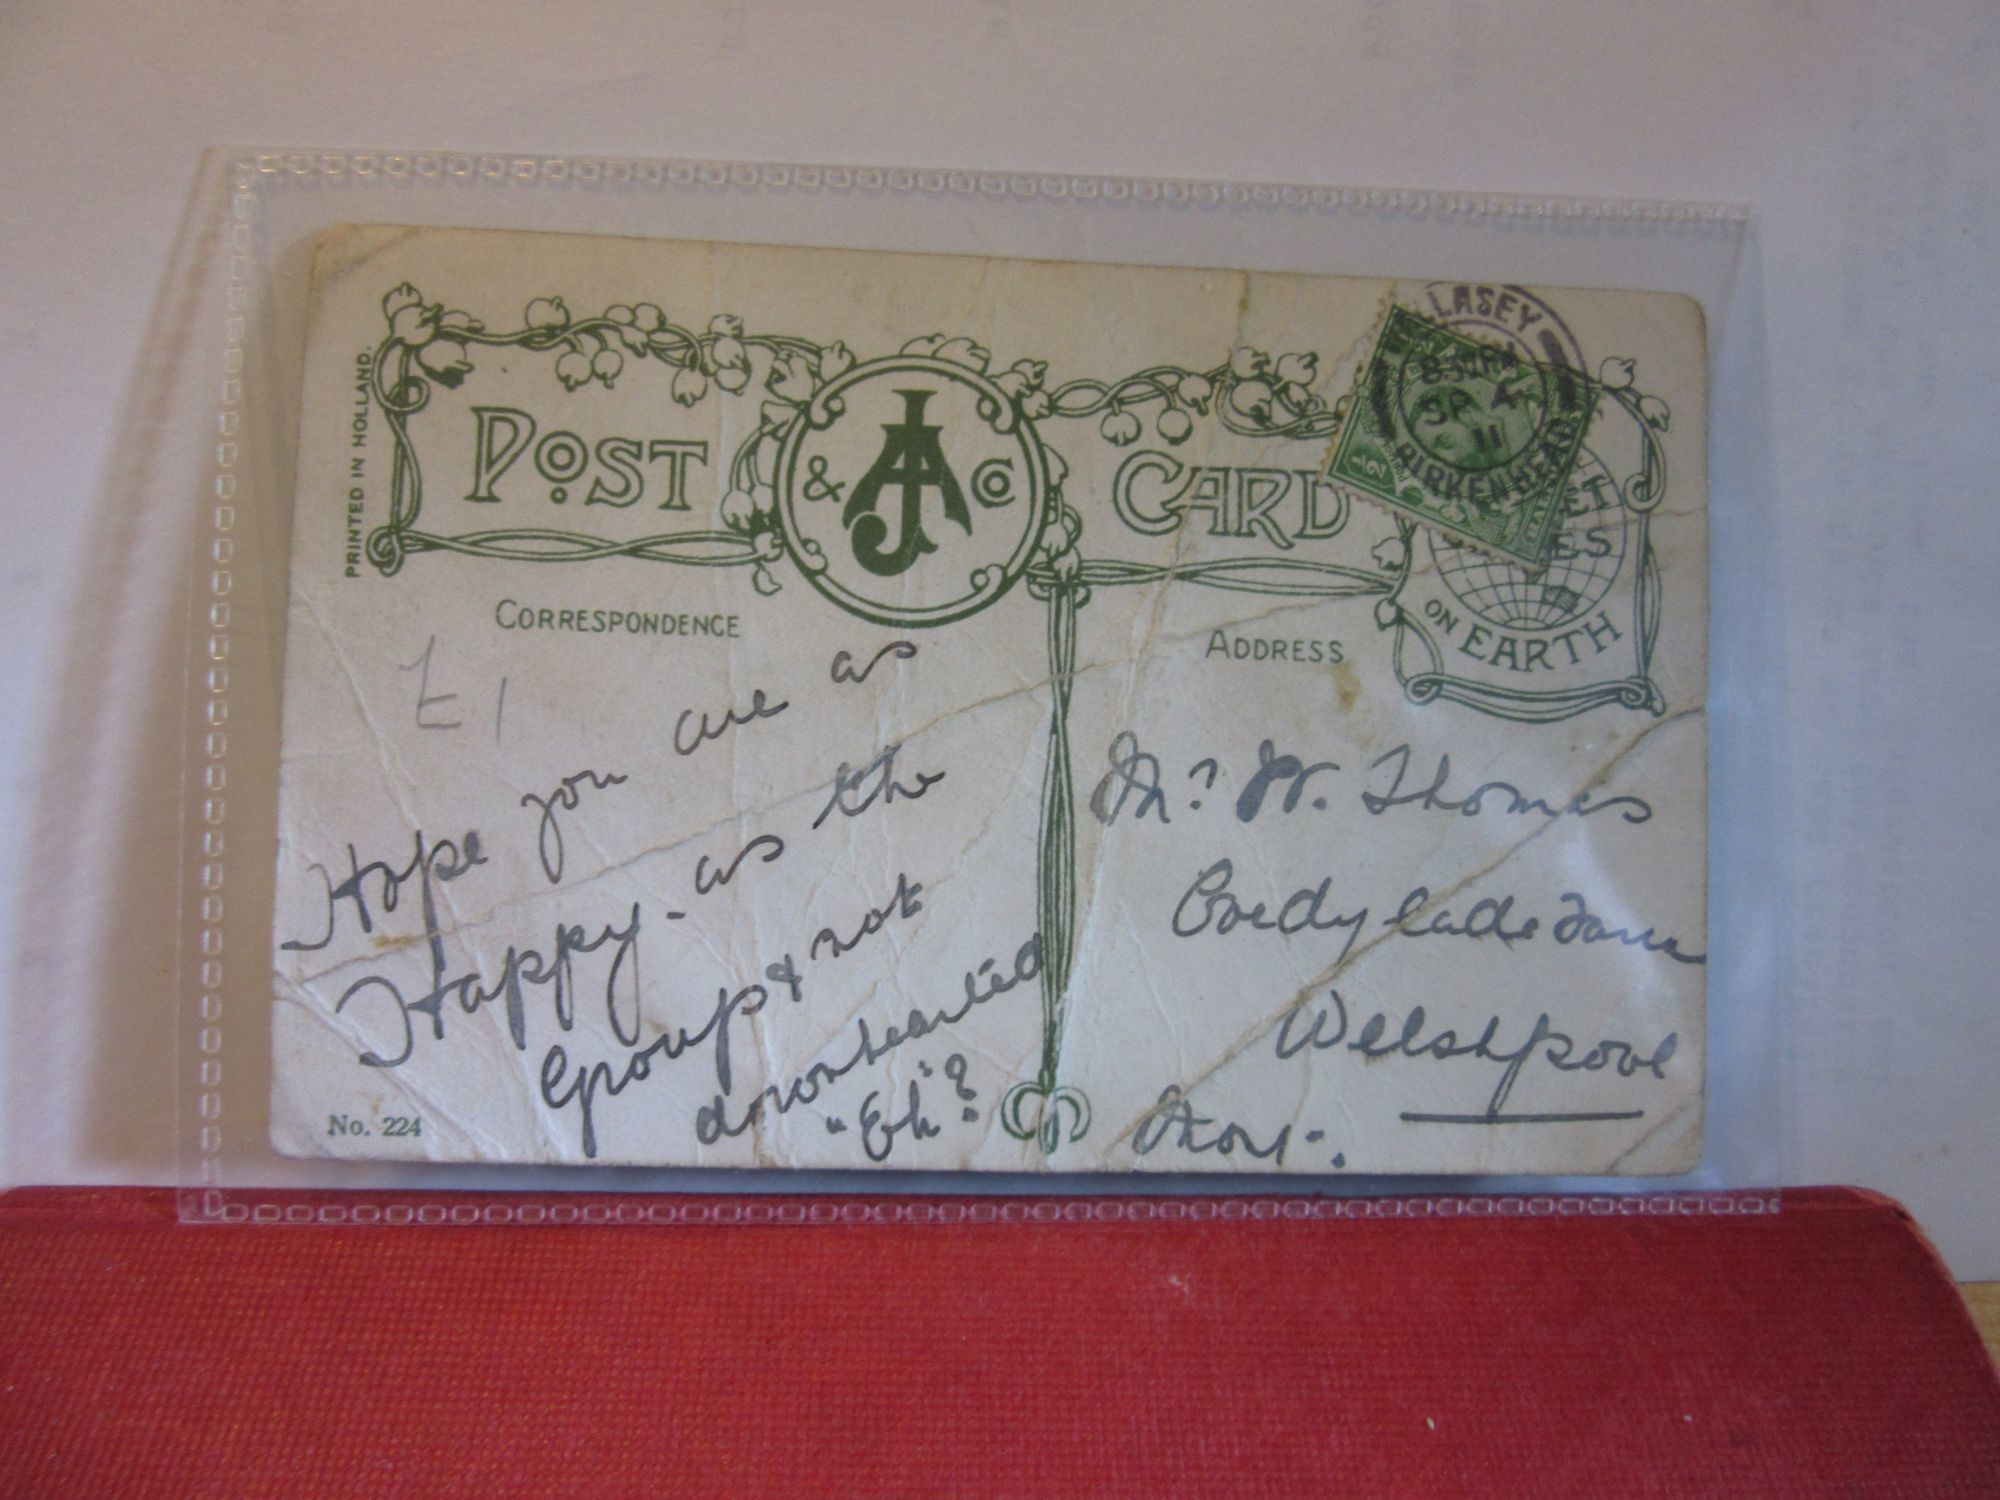 PRINTED IN HOLLAND.
POST
& AJ Co
CARD
LASEY
8.30PM
SP 4
11
BIRKENHEAD
1/2
ON EARTH
CORRESPONDENCE
ADDRESS
£1
Hope you are as
Happy - as the
Group & not
downhearted
"Eh"?
No. 224
Mr. W. Thomas
Welshpool
Mont.